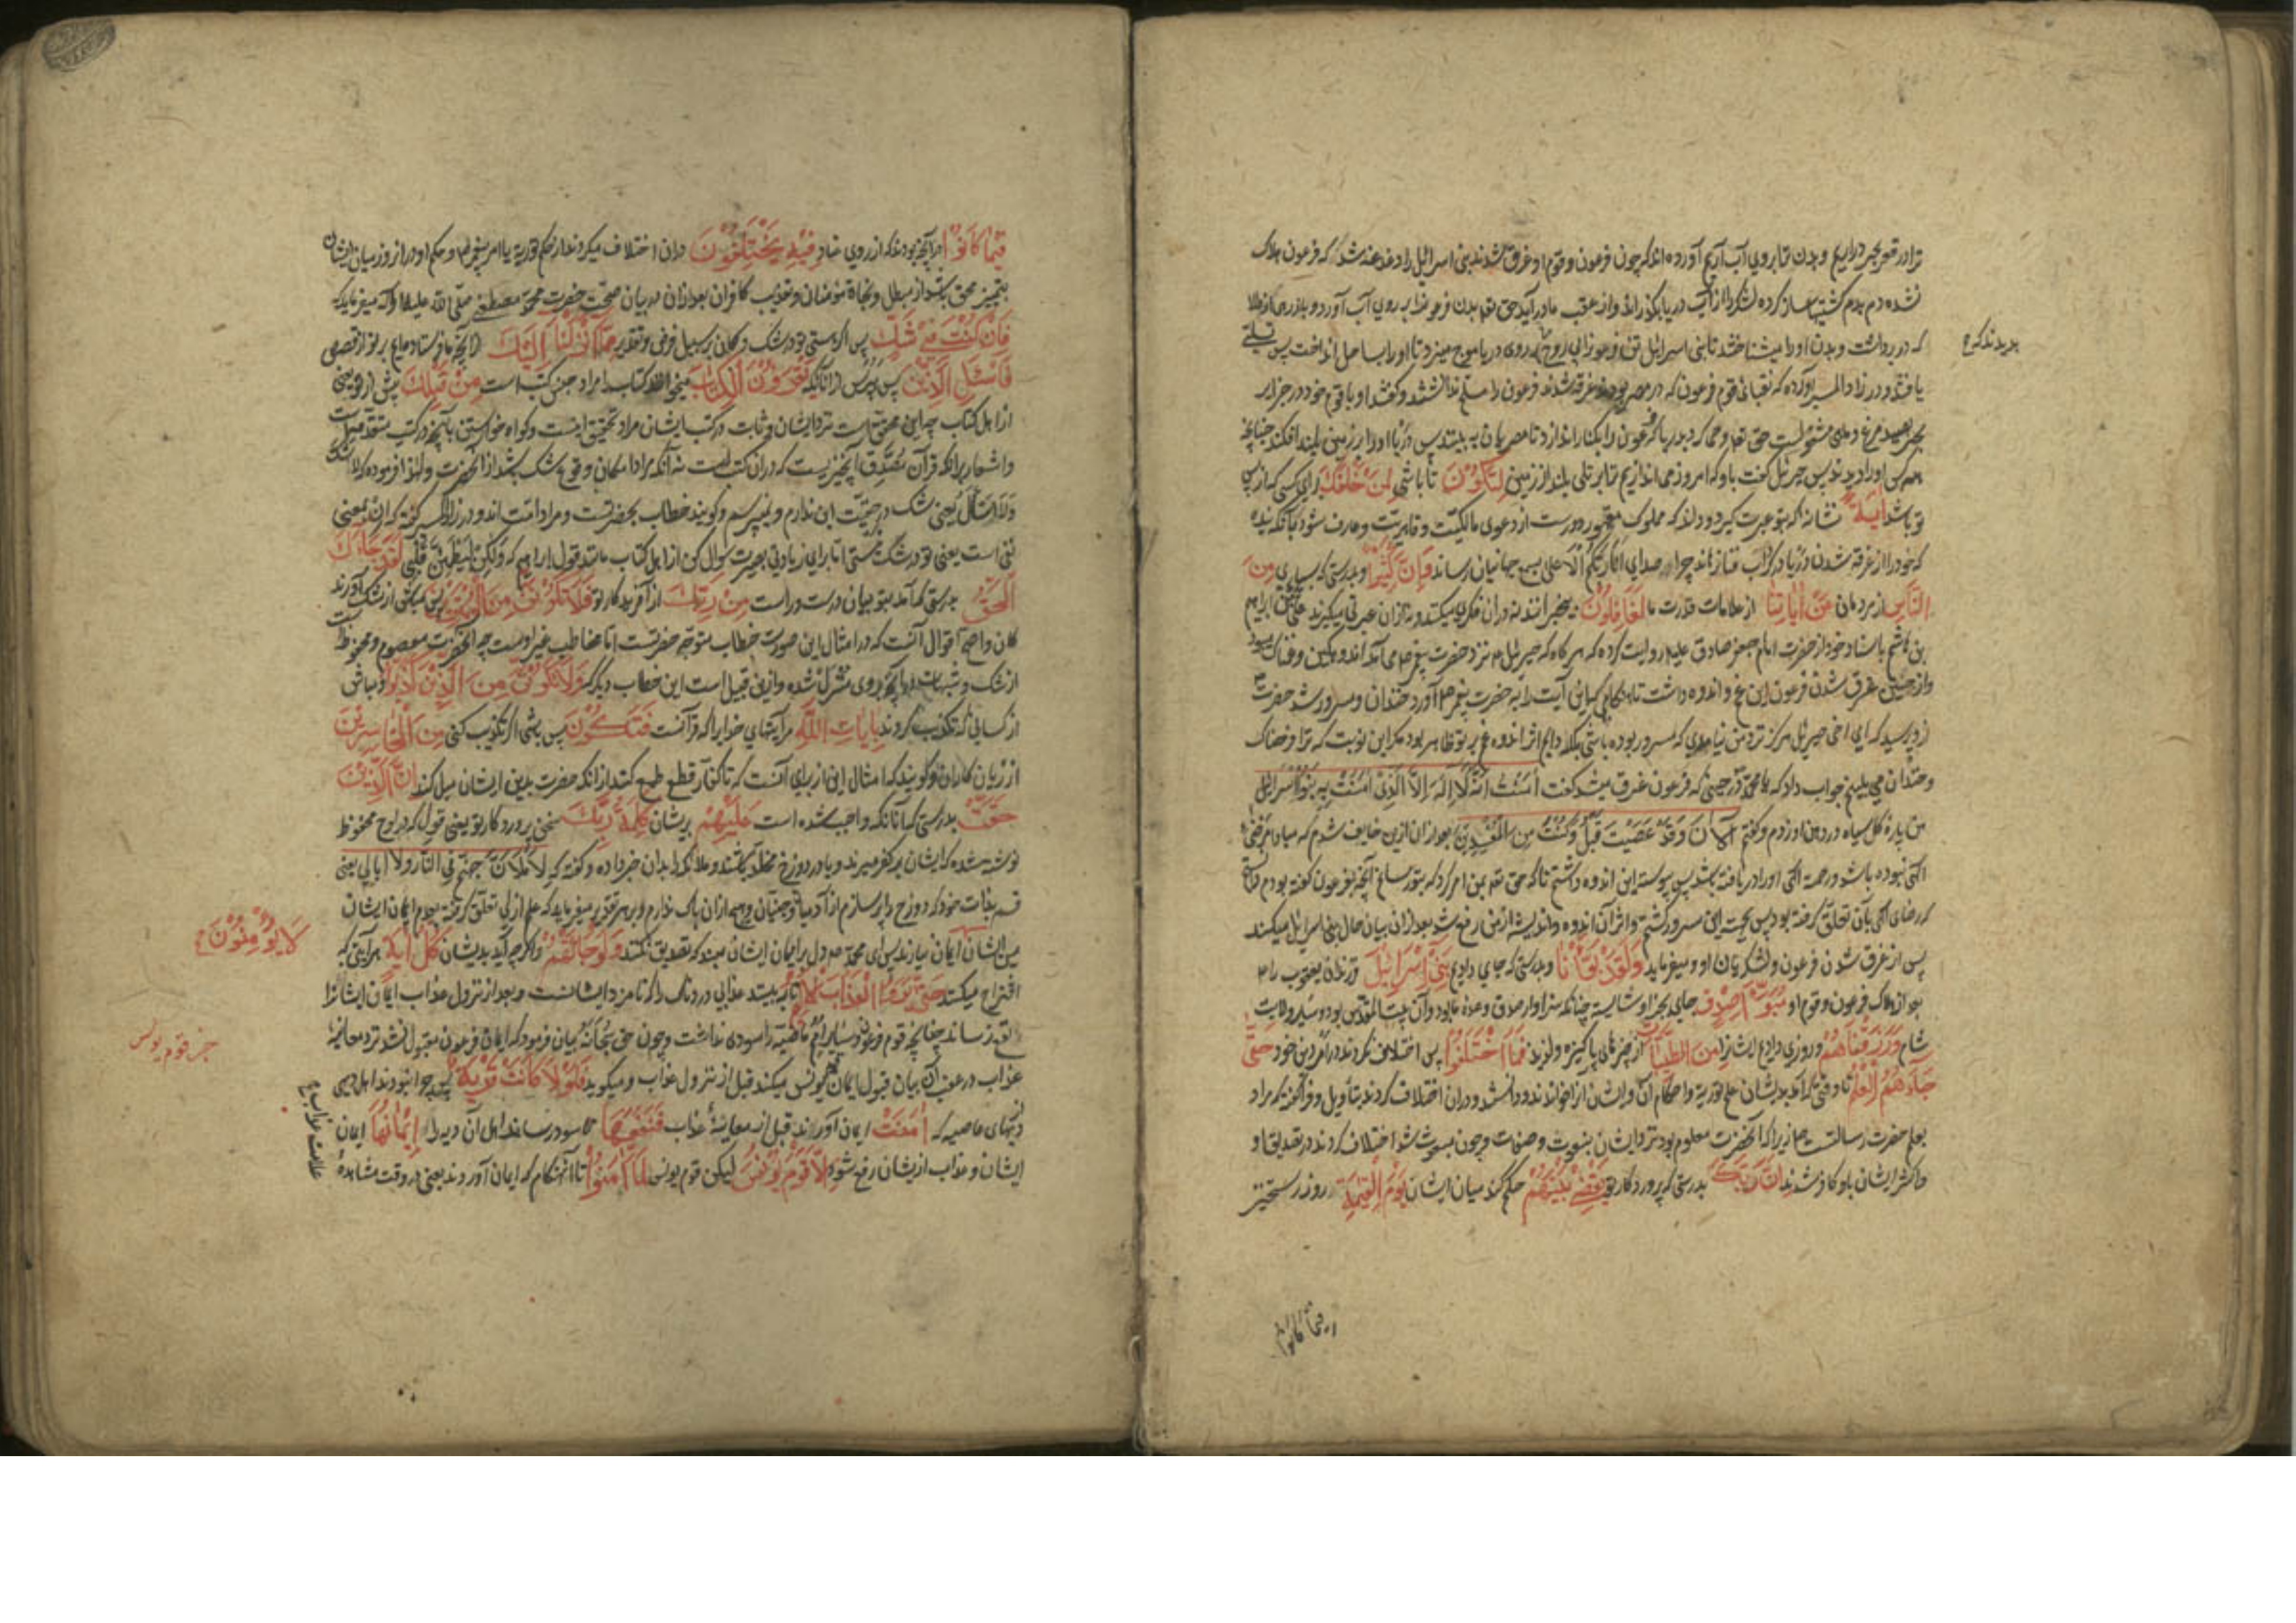 ترا در قعر بحر نداریم و بدن ترا بروی آب آریم آورده‌اند که چون فرعون و قوم او غرق شدند بنی اسرائیل را دغدغه شد که فرعون هلاک
نشده دم بدم کشتیها ساز کرده لشکر را از آب دریا بگذراند و از عقب ما در آید حق تعالی بدن فرعون را بروی آب آورد
که در برداشت و بدن او را میشناختند تا بنی اسرائیل تن فرعون را بی روح روی دریا موج میزد تا او را بساحل انداخت پس
بدیدند که
یافتند و در زاد المسیر آورده که بقیهٔ قوم فرعون که در مصر بودند غرقه شدند فرعون را مسلم نداشتند و گفتند او با قوم خود در جزایر
بحر بصید مرغ و ماهی مشغولست حق تعالی وحی کرد بدریا که فرعون را بکنار انداز تا مصریان به بینند پس دریا او را بر زمین بلند افکند چنانچه
همه کس او را دیدند پس جبرئیل گفت باو که امروز می اندازیم ترا بر تلی بلند از زمین لِتَكُونَ تا باشی لِمَنْ خَلْفَكَ برای کسی که از پی
تو باشد آيَةً نشانه که بتو عبرت گیرد و داند که مملوک مقهور دورست از دعوی مالکیت و قاهریت و عارف شود بآنکه بنده
که خود را از غرقه شدن در گرداب فنا نرهاند چرا صدای انا ربکم الاعلی بسمع جهانیان رساند وَإِنَّ كَثِيرًا و بدرستی که بسیاری مِنَ
النَّاسِ از مردمان عَنْ آيَاتِنَا از علامات قدرت ما لَغَافِلُونَ بیخبرانند نه در آن فکری میکنند و نه از آن عبرتی میگیرند علی بن ابراهیم
بن هاشم باسناد خود از حضرت امام جعفر صادق علیه روایت کرده که هر گاه که جبرئیل نزد حضرت پیغمبر می آمد اندوهگین و غمناک میبود
و از حین غرق شدن فرعون این غم و اندوه داشت تا هنگامی که این آیت را به حضرت پیغمبر آورد خندان و مسرور شد حضرت
از و پرسید که ای اخی جبرئیل هرگز نزد من نیامدی که مسرور بوده باشی بلکه دایم اثر اندوه بر تو ظاهر بود مگر این نوبت که ترا فرحناک
و خندان می بینم جواب داد که یا محمد در حینی که فرعون غرق میشد گفت آمَنْتُ أَنَّهُ لَا إِلَهَ إِلَّا الَّذِي آمَنَتْ بِهِ بَنُو إِسْرَائِيلَ
من پاره گل سیاه در دهن او زدم و گفتم آلْآنَ وَقَدْ عَصَيْتَ قَبْلُ وَكُنْتَ مِنَ الْمُفْسِدِينَ بعد از آن ازین خایف شدم که مبادا مرضی
الهی نبوده باشد و رحمت الهی او را دریافته باشد پس پیوسته این اندوه داشتم تا که حق تعالی بمن امر کرد که بتو رسانم آنچه بفرعون گفته بودم
که رضای الهی بآن تعلق گرفته بود پس بجهت این مسرور گشتم و اثر آن اندوه و اندیشه از من رفع شد بعد از آن بیان حال بنی اسرائیل میکند
پس از غرق شدن فرعون و لشکریان او و میفرماید وَلَقَدْ بَوَّأْنَا و بدرستی که جای دادیم بَنِي إِسْرَائِيلَ فرزندان یعقوب را
بعد از هلاک فرعون و قوم او مُبَوَّأَ صِدْقٍ جای بخیر و شایسته چنانکه سزاوار صدق وعدهٔ ما بود و آن بیت المقدس بود و سایر ولایت
شام وَرَزَقْنَاهُمْ و روزی دادیم ایشان را مِنَ الطَّيِّبَاتِ از چیزهای پاکیزه و لذیذ فَمَا اخْتَلَفُوا پس اختلاف نکردند در امر دین خود حَتَّى
جَاءَهُمُ الْعِلْمُ تا وقتی که آمد بدیشان علم توریة و احکام آن و ایشان آنرا خواندند و دانستند و در آن اختلاف کردند بتأویل و فرا گرفتند مراد
بعلم حضرت رسالت زیرا که آنحضرت معلوم بود نزد ایشان بنعوت و صفات و چون مبعوث شد اختلاف کردند در تصدیق او
و اکثر ایشان باو کافر شدند إِنَّ رَبَّكَ بدرستی که پروردگار تو يَقْضِي بَيْنَهُمْ حکم کند میان ایشان يَوْمَ الْقِيَامَةِ روز رستخیز
فیما کانوا
فِيمَا كَانُوا در آنچه بودند که از روی عناد فِيهِ يَخْتَلِفُونَ در آن اختلاف میکردند از حکم توریة یا امر پیغمبر و حکم او در آن روز میان ایشان
بتمییز محق باشد از مبطل و نجاة مؤمنان و تعذیب کافران بعد از آن در بیان صحت حضرت محمد مصطفی صلی الله علیه و آله میفرماید که
فَإِنْ كُنْتَ فِي شَكٍّ پس اگر هستی تو در شک و گمان بر سبیل فرض و تقدیر مِمَّا أَنْزَلْنَا إِلَيْكَ از آنچه ما فرستاده‌ایم بر تو از قصص
فَاسْأَلِ الَّذِينَ پس بپرس از آنانکه يَقْرَءُونَ الْكِتَابَ میخوانند کتاب مراد جنس کتب است مِنْ قَبْلِكَ پیش از تو یعنی
از اهل کتاب چه این محقق است نزد ایشان و ثابت در کتب ایشان مراد تحقیق اینست و گواه خواستن بآنچه در کتب متقدمه است
و اشعار بر آنکه قرآن مصدق آنچیزیست که در آن کتب است نه آنکه مراد امکان وقوع شک باشد از آنحضرت و لهذا فرموده که لا اشک
وَلَا اسأل یعنی شک در حقیت این ندارم و نمیپرسم و گویند خطاب بحضرتست و مراد امت اند و در زاد المسیر گفته که اِن بمعنی
نفی است یعنی تو در شک نیستی اما برای زیادتی بصیرت سؤال کن از اهل کتاب مانند قول ابراهیم که وَلَكِنْ لِيَطْمَئِنَّ قَلْبِي لَقَدْ جَاءَكَ
الْحَقُّ بدرستی که آمد بتو بیان درست و راست مِنْ رَبِّكَ از آفریدگار تو فَلَا تَكُونَنَّ مِنَ الْمُمْتَرِينَ پس مباش از شک آورندگان
و اصح اقوال آنست که در امثال این صورت خطاب متوجه حضرتست اما مخاطب غیر اوست چه آنحضرت معصوم و محفوظ است
از شک و شبهات در آنچه بروی منزل شده و ازین قبیل است این خطاب دیگر که وَلَا تَكُونَنَّ مِنَ الَّذِينَ كَذَّبُوا و مباش
از کسانی که تکذیب کردند بِآيَاتِ اللَّهِ مر آیتهای خدایرا که قرآنست فَتَكُونَ پس باشی اگر تکذیب کنی مِنَ الْخَاسِرِينَ
از زیان کاران و گویند که امثال این از برای آنست که تا کفار قطع طمع کنند از آنکه حضرت بدین ایشان میل کند إِنَّ الَّذِينَ
حَقَّتْ بدرستی که آنانکه واجب شده است عَلَيْهِمْ بریشان كَلِمَةُ رَبِّكَ سخن پروردگار تو یعنی قول که در لوح محفوظ
نوشته شده که ایشان بر کفر میرند و یا در دوزخ مخلد باشند و ملائکه را بدان خبر داده و گفته که لَأَمْلَأَنَّ جهنم فی النار ولا ابالی یعنی
قسم بذات خود که دوزخ را پر سازم از آدمیان و جنیان و هیچ از آن باک ندارم و بر هر تقدیر میفرماید که علم ازلی تعلق گرفته بعدم ایمان ایشان
لَا يُؤْمِنُونَ
پس ایشان ایمان نیارند پس ای محمد دل بر ایمان ایشان مبند که تصدیق نکنند وَلَوْ جَاءَتْهُمْ و اگر چه آید بدیشان كُلُّ آيَةٍ هر آیتی که
اقتراح میکنند حَتَّى يَرَوُا الْعَذَابَ الْأَلِيمَ تا به بینند عذابی دردناک را که نامزد ایشانست و بعد از نزول عذاب ایمان ایشانرا
نفع نرساند چنانچه قوم فرعون و سایر امم ماضیه را سودی نداشت و چون حق سبحانه بیان فرمود که ایمان فرعون مقبول نشد نزد معاینهٔ
جز قوم یونس
عذاب در عقب آن بیان قبول ایمان قوم یونس میکند قبل از نزول عذاب و میگوید فَلَوْلَا كَانَتْ قَرْيَةٌ پس چرا نبودند اهل دیهی
از دیههای عاصیه که آمَنَتْ ایمان آوردند قبل از معاینهٔ عذاب فَنَفَعَهَا تا سود رساند اهل آن دیه را إِيمَانُهَا ایمان
ایشان و عذاب ازیشان رفع شود إِلَّا قَوْمَ يُونُسَ لیکن قوم یونس لَمَّا آمَنُوا تا آن هنگام که ایمان آوردند یعنی در وقت مشاهدهٔ
علامت عذاب